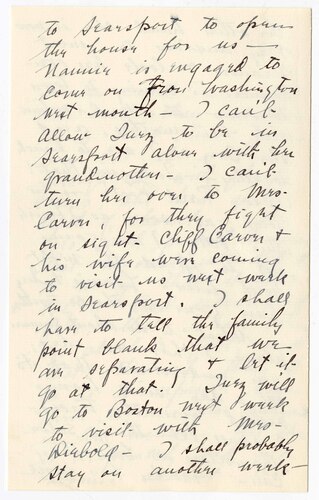 to Searsport to open
the house for us —
Nannie is engaged to
come on from Washington
next month — I can't
allow Inez to be in
Searsport alone with her
grandmother — I can't
turn her over to Mrs.
Carver, for they fight
on sight. Cliff Carver +
his wife were coming
to visit us next week
in Searsport. I shall
have to tell the family
point blank that we
are separating + let it
go at that. Inez will
go to Boston next week
to visit with Mrs.
Diebold — I shall probably
stay on another week —